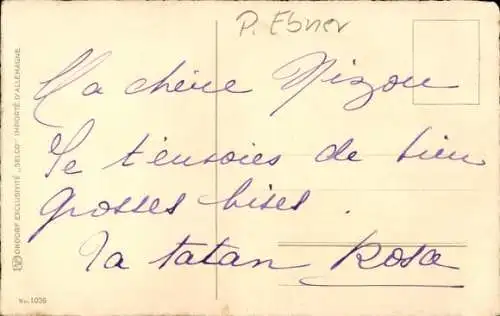 P. Ebner
Ma chère Nizou
Je t'ensoies de bien
grosses bises.
Ta tatan Rosa
ORDORF EXCLUSIVITÉ „DELCO" IMPORTÉ D'ALLEMAGNE
No. 1036